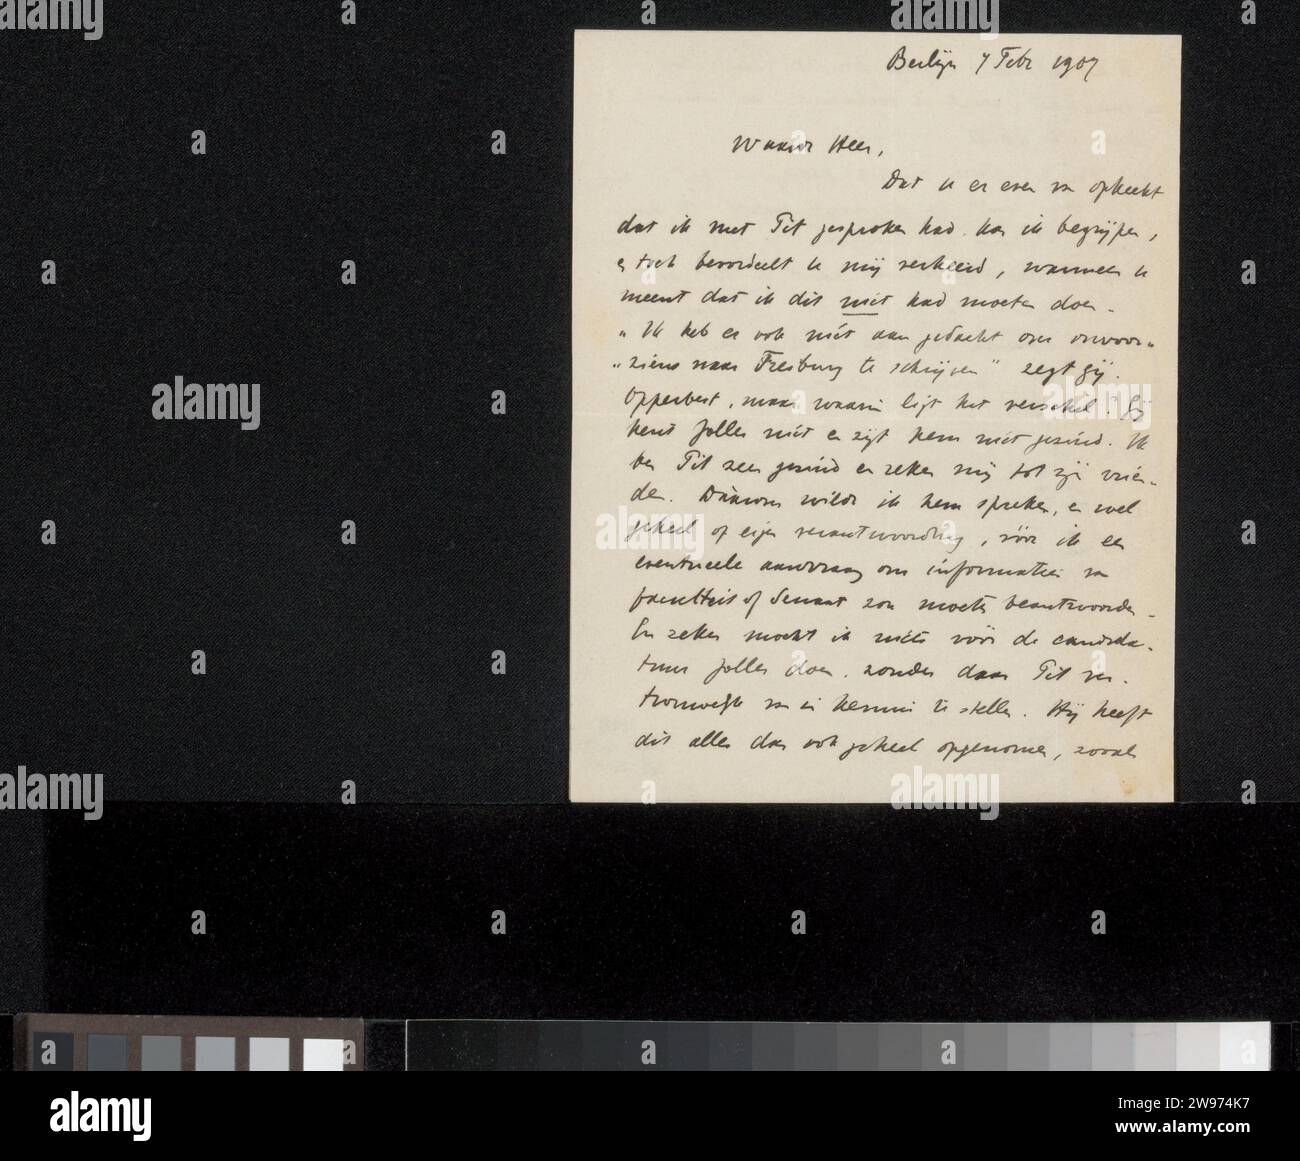 Berlijn 7 Febr 1907
Waarde Heer,
Dat u er even van opkeekt
dat ik met Tit gesproken had kan ik begrijpen,
en toch beoordeelt u mij verkeerd, wanneer u
meent dat ik dit niet had moeten doen.
"Ik heb er ook niét aan gedacht om onvoor-
"ziens naar Freiburg te schrijven" zegt gij.
Opperbest, maar waarin ligt het verschil? Gij
kent Jolles niét en zijt hem niét gezind. Ik
ben Tit zeer gezind en reken mij tot zijn vrien-
den. Dáárom wilde ik hem spreken, en wel
geheel op eigen verantwoording, vóór ik een
eventueele aanvraag om informatie van
faculteit of Senaat zou moeten beantwoorden.
En zeker mocht ik niéts vóór de candida-
tuur Jolles doen, zonder daar Tit ver-
trouwelijk van in kennis te stellen. Hij heeft
dit alles dan ook geheel opgenomen, zooals
alamy
Image ID: 2W974K7
www.alamy.com